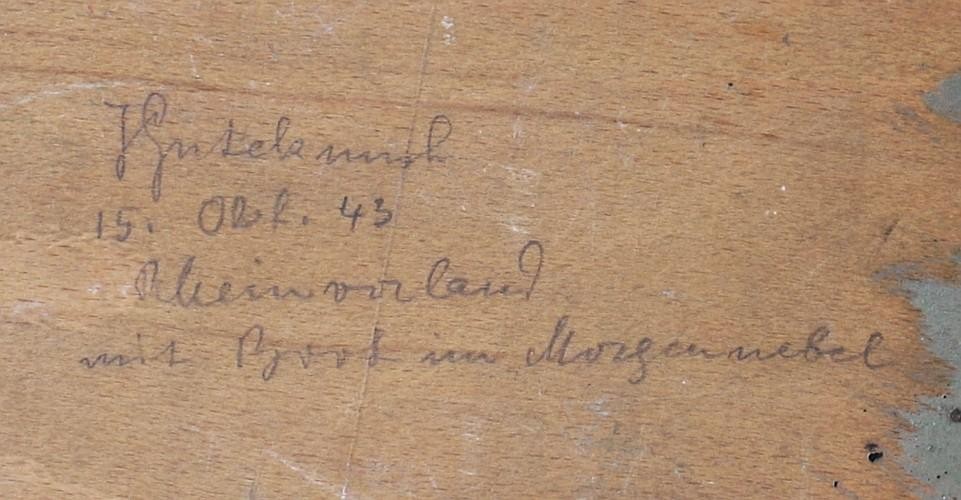 15. Okt. 43
Rheinvorland
mit Boot im Morgennebel